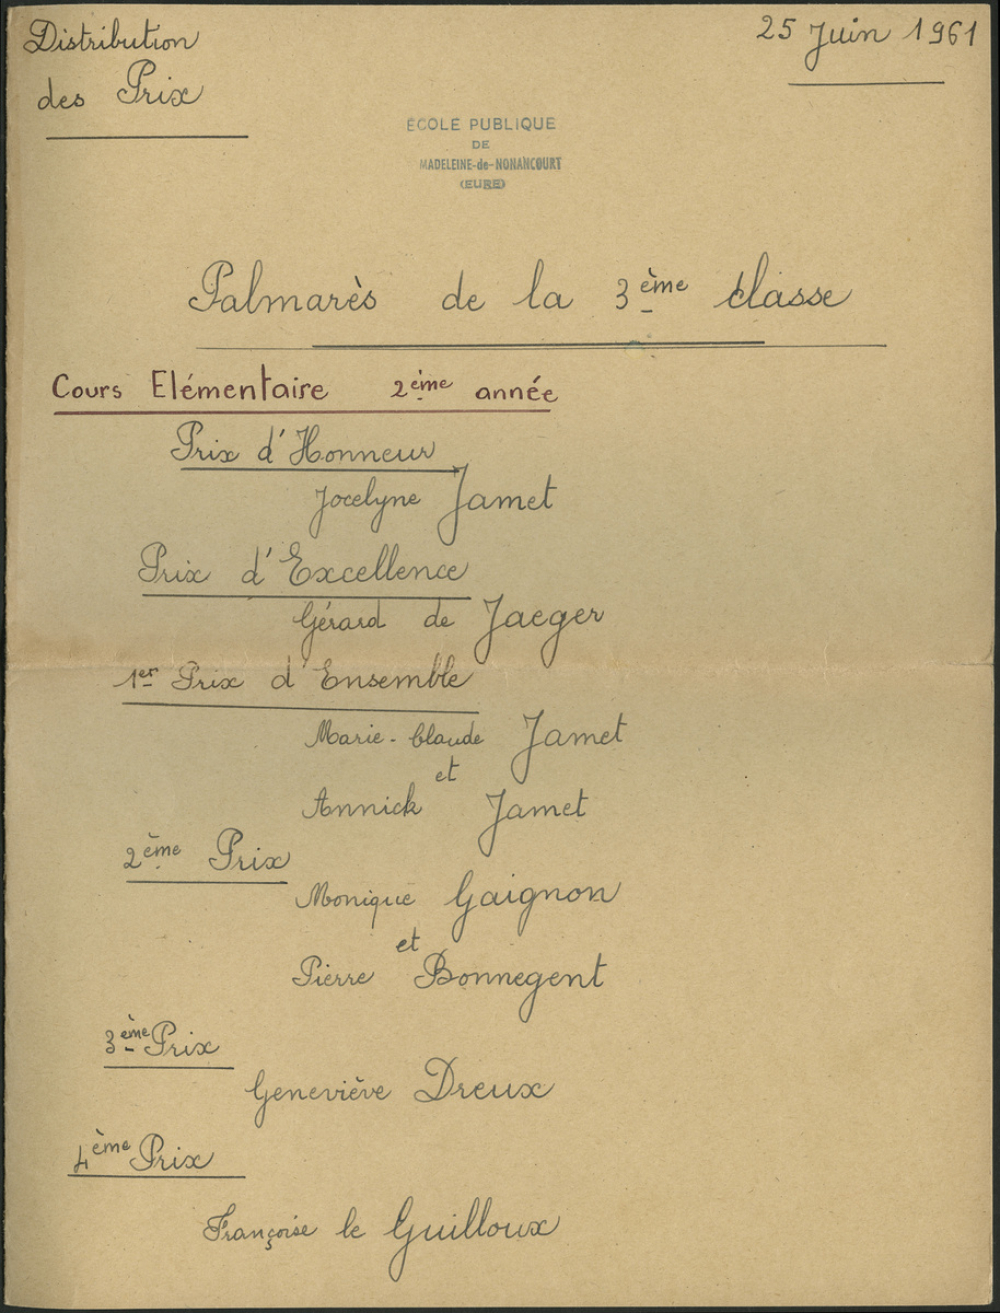 Distribution
des Prix
25 Juin 1961
ÉCOLE PUBLIQUE
DE
MADELEINE-de-NONANCOURT
(EURE)
Palmarès de la 3ème classe
Cours Elémentaire 2ème année
Prix d'Honneur
Jocelyne Jamet
Prix d'Excellence
Gérard de Jaeger
1er Prix d'Ensemble
Marie-Claude Jamet
et
Annick Jamet
2ème Prix
Monique Gaignon
et
Pierre Bonnegent
3ème Prix
Geneviève Dreux
4ème Prix
Françoise le Guilloux